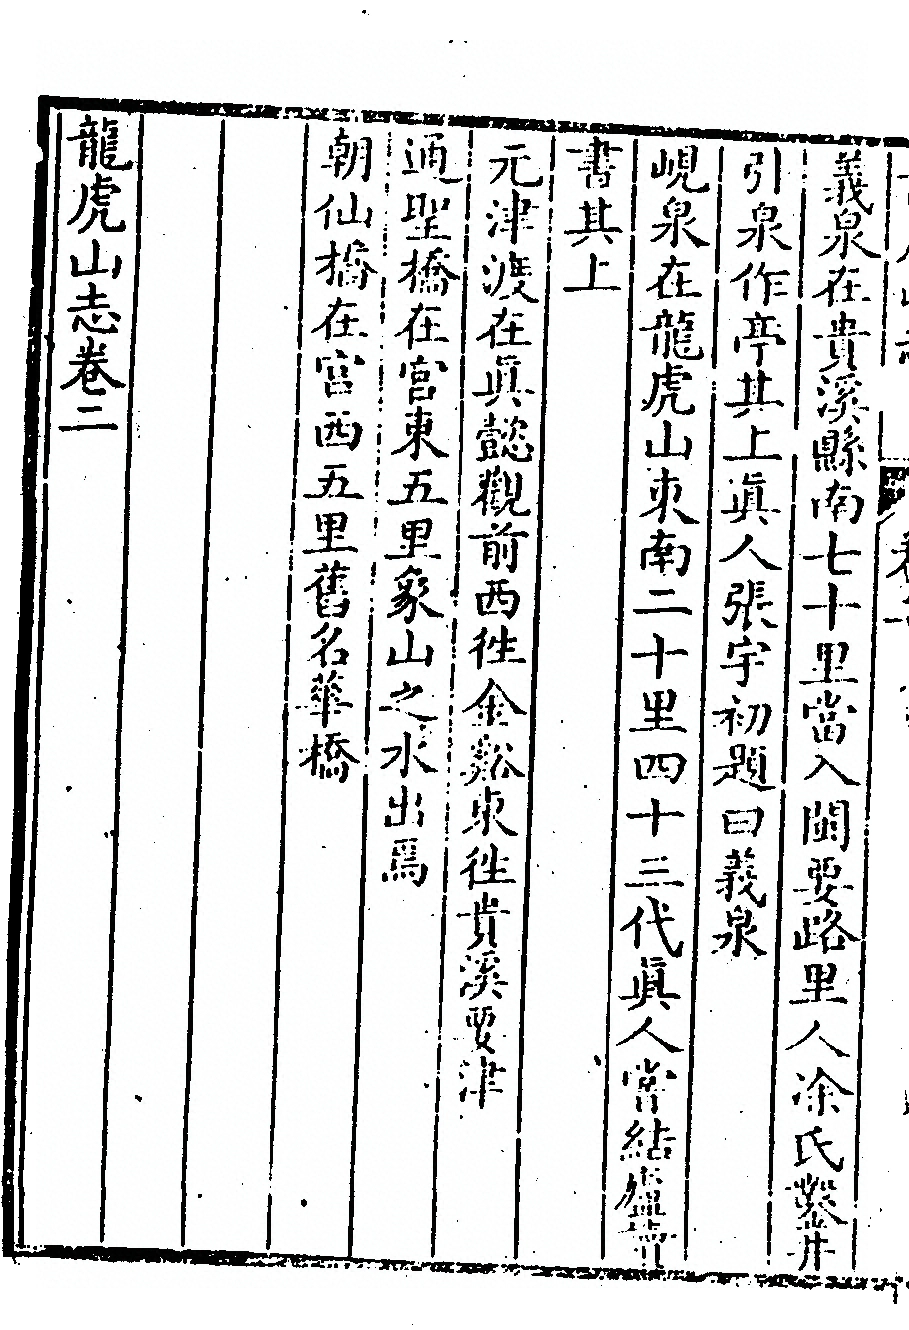 義泉在貴溪縣南七十里當入閩要路里人涂氏鑿井
引泉作亭其上眞人張宇初題曰義泉
峴泉在龍虎山東南二十里四十三代眞人嘗結廬
書其上
元津渡在眞懿觀前西徃金谿東徃貴溪要津
通聖橋在宮東五里象山之水出焉
朝仙橋在宮西五里舊名華橋
龍虎山志卷二